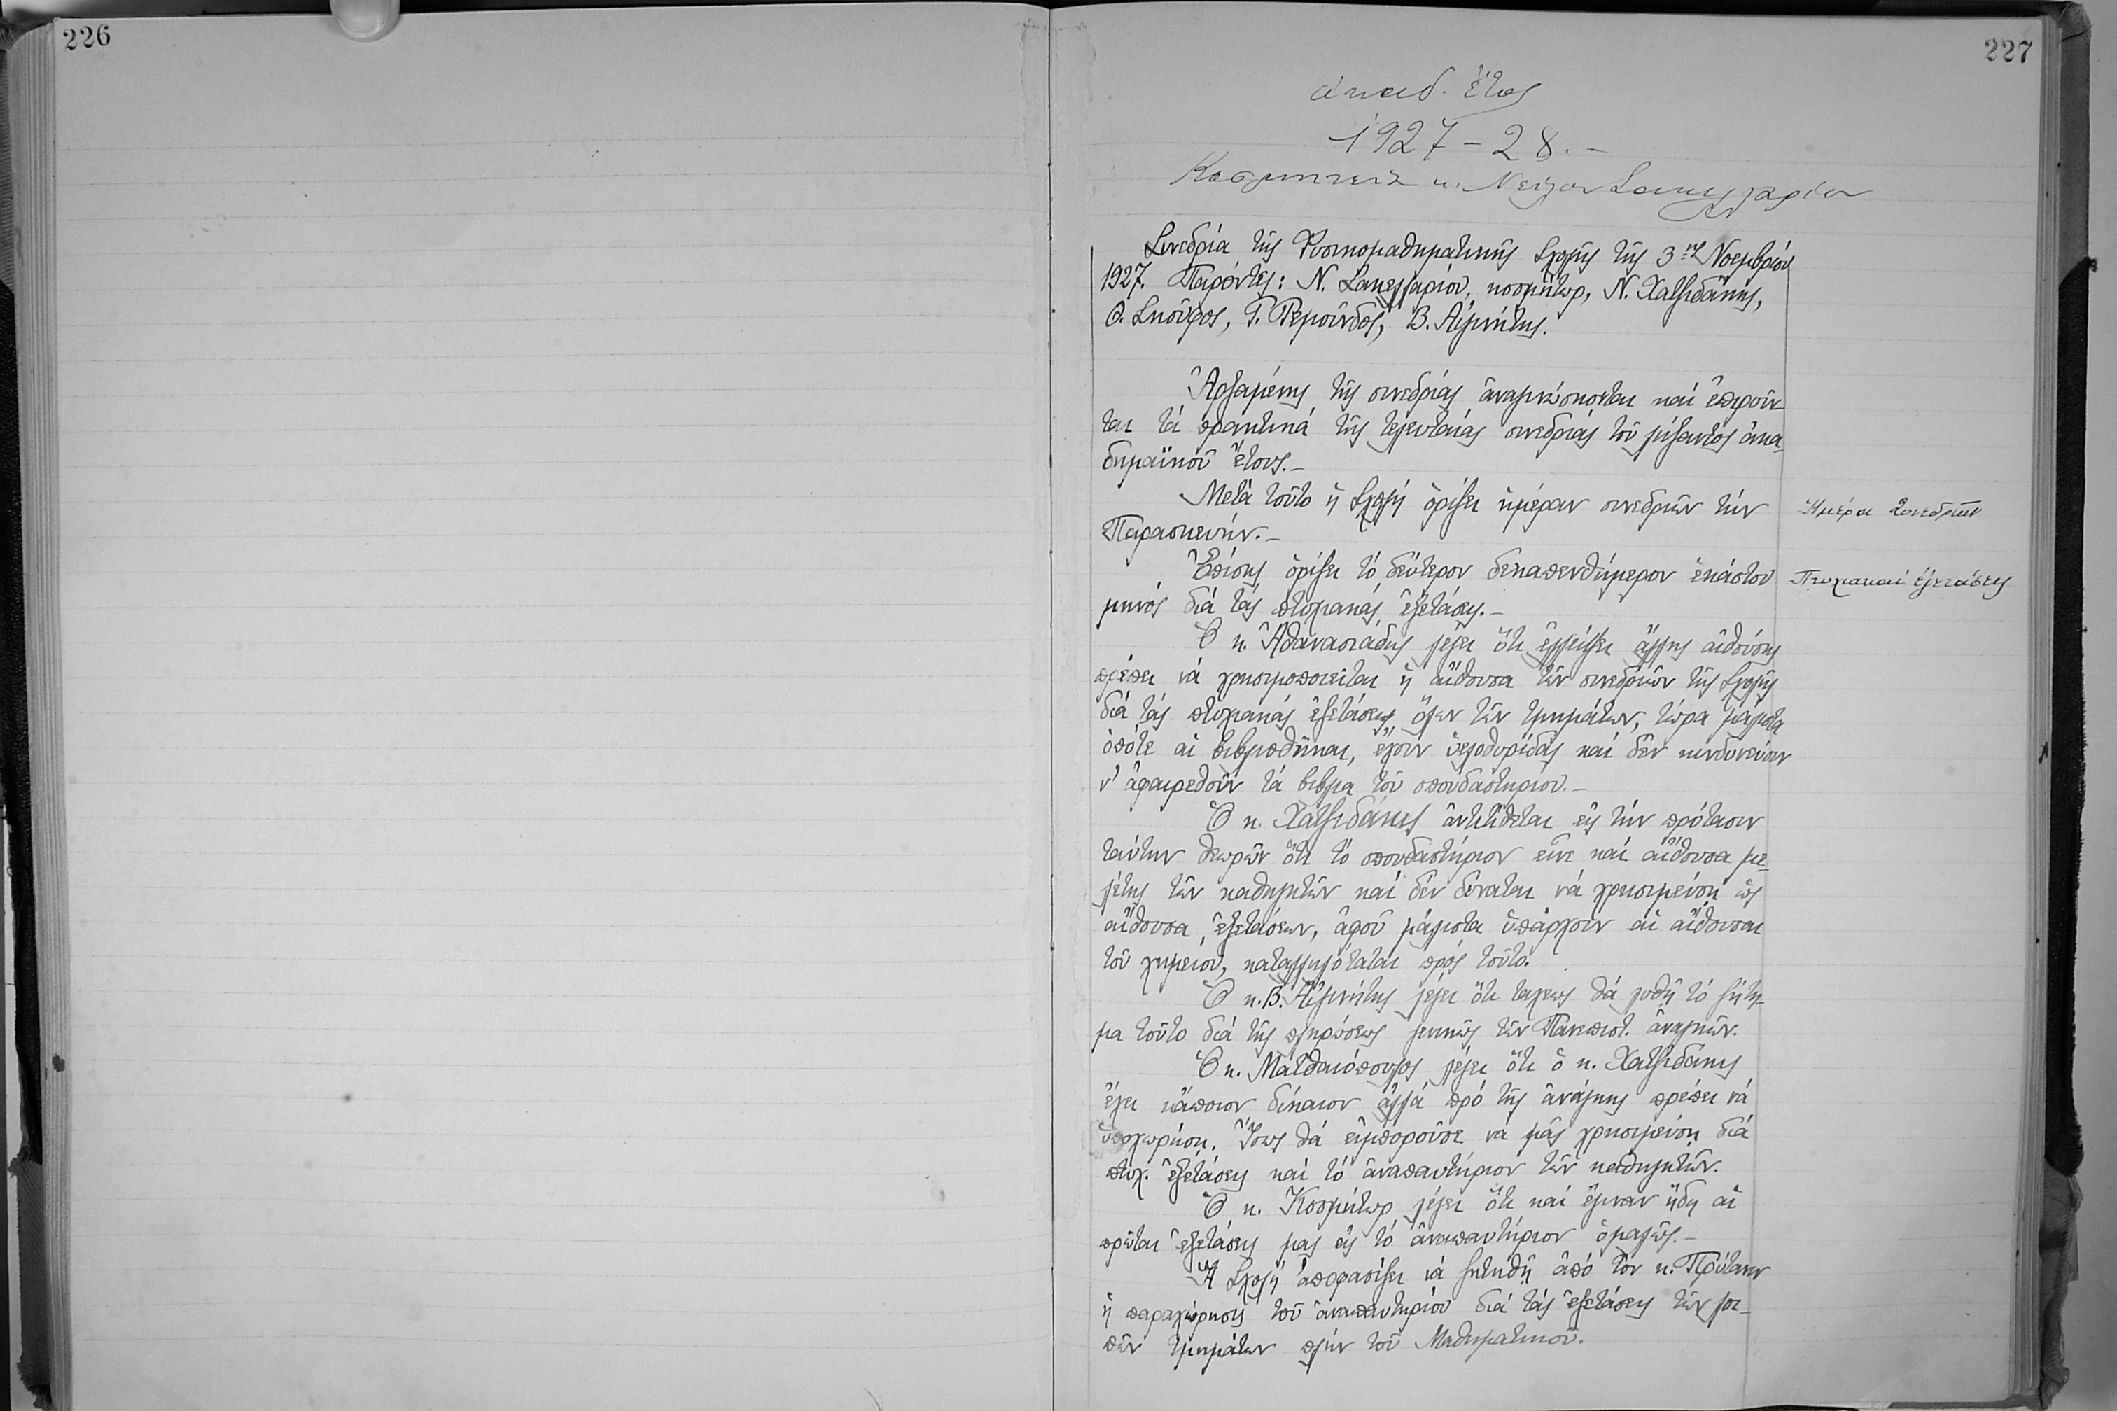 226
227
ἀκαδ. ἔτος
1927-28.-
Κοσμητεία κ. Νείλου Σακελλαρίου
Συνεδρία τῆς Φυσικομαθηματικῆς Σχολῆς τῆς 3ης Νοεμβρίου
1927. Παρόντες: Ν. Σακελλαρίου, κοσμήτωρ, Ν. Χατζιδάκης,
Θ. Σκοῦφος, Γ. Ρεμοῦνδος, Β. Αἰγινήτης.
Ἀρξαμένης τῆς συνεδρίας ἀναγινώσκονται καί ἐπικροῦν-
ται τά πρακτικά τῆς τελευταίας συνεδρίας τοῦ λήξαντος ἀκα-
δημαϊκοῦ ἔτους.-
Μετά τοῦτο ἡ Σχολή ὁρίζει ἡμέραν συνεδριῶν τήν
Ἡμέρα Συνεδριῶν
Παρασκευήν.-
Ἐπίσης ὁρίζει τό δεύτερον δεκαπενθήμερον ἑκάστου
Πτυχιακαί ἐξετάσεις
μηνός διά τάς πτυχιακάς ἐξετάσεις.-
Ὁ κ. Ἀθανασιάδης λέγει ὅτι ἐλλείψει ἄλλης αἰθούσης
πρέπει νά χρησιμοποιεῖται ἡ αἴθουσα τῶν συνεδριῶν τῆς Σχολῆς
διά τάς πτυχιακάς ἐξετάσεις ὅλων τῶν τμημάτων, τώρα μάλιστα
ὁπότε αἱ βιβλιοθῆκαι, ἔχουν ὑελοθυρίδας καί δέν κινδυνεύουν
ν' ἀφαιρεθοῦν τά βιβλία τοῦ σπουδαστηρίου.-
Ὁ κ. Χατζιδάκης ἀντιτίθεται εἰς τήν πρότασιν
ταύτην θεωρῶν ὅτι τό σπουδαστήριον εἶνε καί αἴθουσα με-
λέτης τῶν καθηγητῶν καί δέν δύναται νά χρησιμεύσῃ ὡς
αἴθουσα ἐξετάσεων, ἀφοῦ μάλιστα ὑπάρχουν αἱ αἴθουσαι
τοῦ χημείου, καταλληλόταται πρός τοῦτο.
Ὁ κ. Β. Αἰγινήτης λέγει ὅτι ταχέως θά λυθῇ τό ζήτη-
μα τοῦτο διά τῆς πληρώσεως γενικῶς τῶν Πανεπιστ. ἀναγκῶν.
Ὁ κ. Ματθαιόπουλος λέγει ὅτι ὁ κ. Χατζιδάκης
ἔχει κάποιον δίκαιον ἀλλά πρό τῆς ἀνάγκης πρέπει νά
ὑποχωρήσῃ. Ἴσως θά εἰμποροῦσε νά μᾶς χρησιμεύσῃ διά
πτυχ. ἐξετάσεις καί τό ἀναπαυτήριον τῶν καθηγητῶν.
Ὁ κ. Κοσμήτωρ λέγει ὅτι καί ἔγιναν ἤδη αἱ
πρῶται ἐξετάσεις μας εἰς τό ἀναπαυτήριον ὁμαλῶς.-
Ἡ Σχολή ἀποφασίζει νά ζητηθῇ ἀπό τόν κ. Πρύτανιν
ἡ παραχώρησις τοῦ ἀναπαυτηρίου διά τάς ἐξετάσεις τῶν λοι-
πῶν τμημάτων πλήν τοῦ Μαθηματικοῦ.